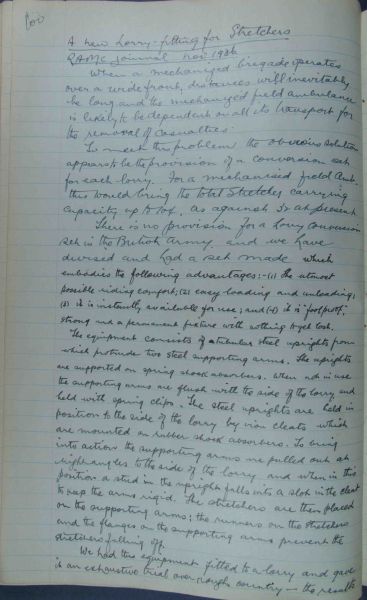 100
A new Lorry-fitting for Stretchers
RAMC Journal Nov. 1936
When a mechanized brigade operates
over a wide front, distances will inevitably
be long and the mechanized field ambulance
is likely to be dependent on all its transport for
the removal of casualties.
To meet this problem the obvious solution
appears to be the provision of a conversion set
for each lorry. For a mechanised field Amb.
this would bring the total Stretcher carrying
capacity up to 104, as against at present
There is no provision for a lorry conversion
set in the British Army, and we have
devised and had a set made which
embodies the following advantages:- (1) the utmost
possible riding comfort; (2) easy loading and unloading;
(3) it is instantly available for use; and (4) it is "foolproof,"
strong and a permanent fixture with nothing to get lost.
The equipment consists of tubular steel uprights from
which protrude two steel supporting arms. The uprights
are supported on spring shock absorbers. When not in use
the supporting arms are flush with the side of the lorry and
held with spring clips. The steel uprights are held in
position to the side of the lorry by iron cleats which
are mounted on rubber shock absorbers. To bring
into action the supporting arms are pulled out at
right angles to the side of the lorry and when in this
position a stud in the upright falls into a slot in the cleat
to keep the arms rigid. The stretchers are then placed
on the supporting arms; the runners on the stretchers
and the flanges on the supporting arms prevent the
stretchers falling off.
We had this equipment fitted to a lorry and gave
it an exhaustive trial over rough country — the results